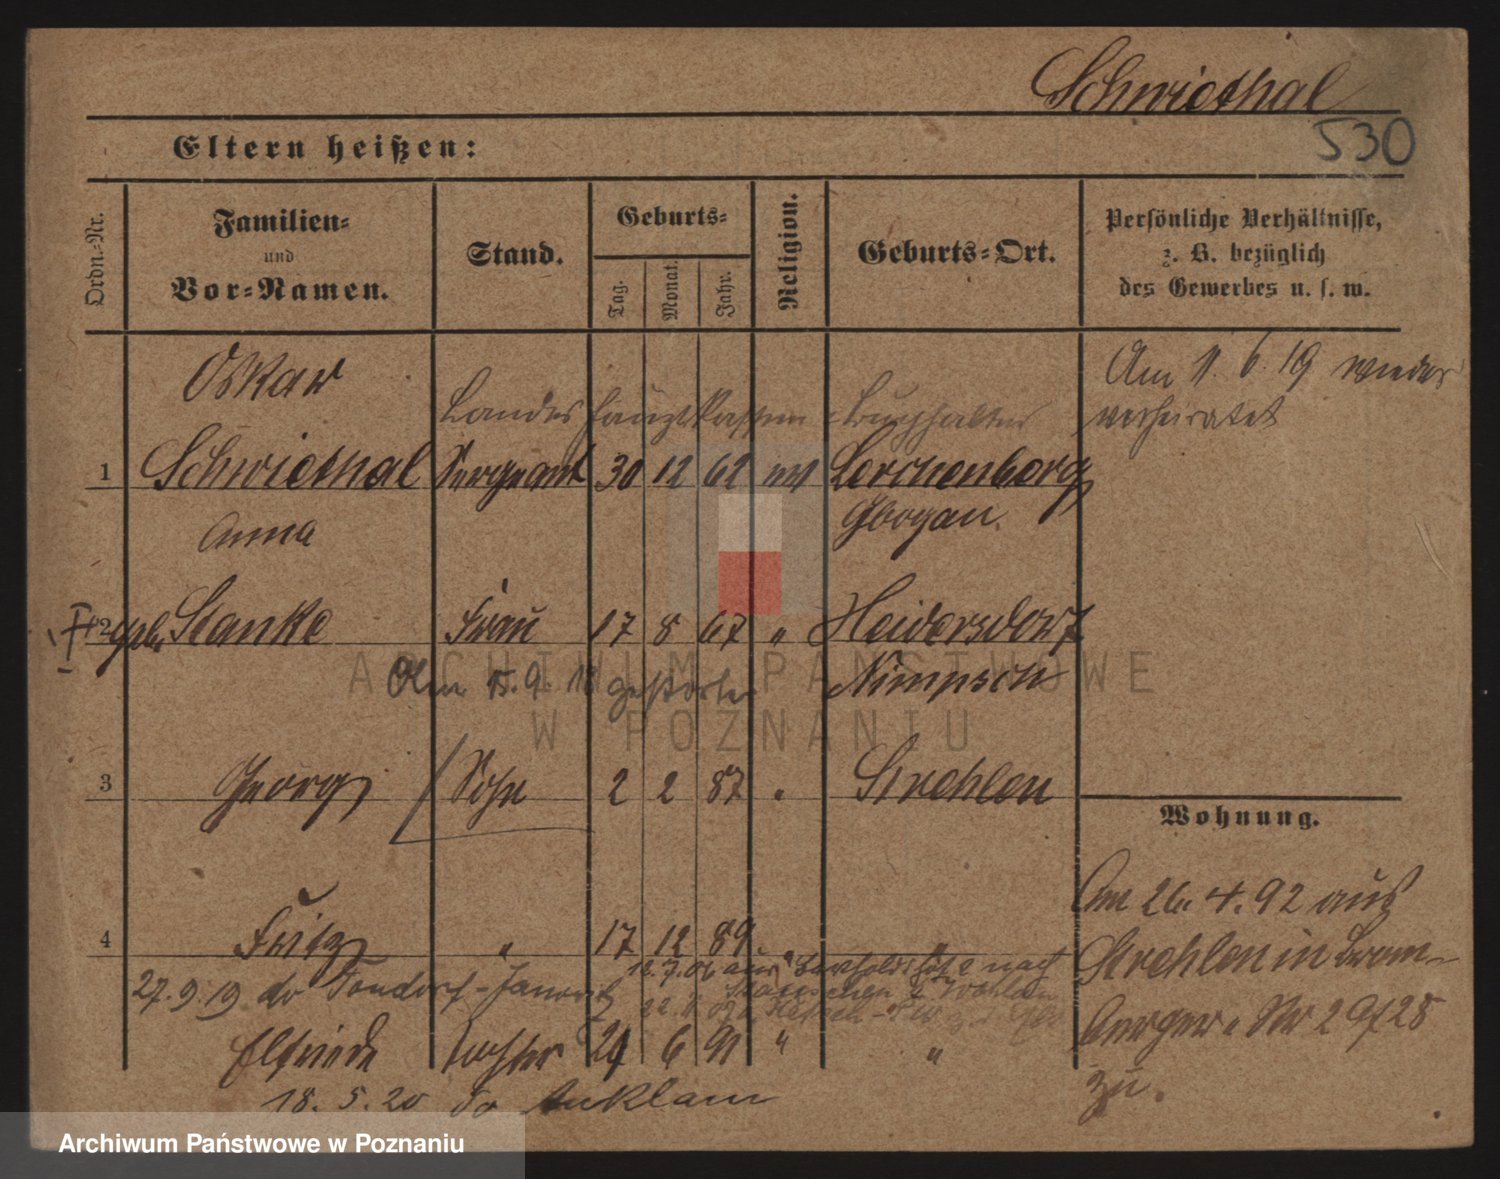 Schwiethal
530
Eltern heißen:
Ordn.-Nr.
Familien-
und
Vor-Namen.
Stand.
Geburts-
Tag.
Monat.
Jahr.
Religion.
Geburts-Ort.
Persönliche Verhältnisse,
z. B. bezüglich
des Gewerbes u. s. w.
Oskar
Am 11. 6. 19 wieder
verheiratet
Landeshauptkassen-Buchhalter
1 Schwiethal Sergeant 30 12 62 Lerchenborg
Glogau.
Anna
2 geb. Stanke Frau 17 8 67 " Heidersdorf
Nimpsch
Am 15. 9. 18 gestorben
3 Georg Sohn 2 2 87 " Strehlen
Wohnung.
4 Fritz " 17 12 89 " "
12. 7. 06 aus nach
27. 9. 19 do
Elfriede Tochter 24 6 91 " "
18. 5. 20 do Anklam
Am 26. 4. 92 aus
Strehlen in Brom-
berger Nr 29/28
zu.
ARCHIWUM PAŃSTWOWE
W POZNANIU
Archiwum Państwowe w Poznaniu